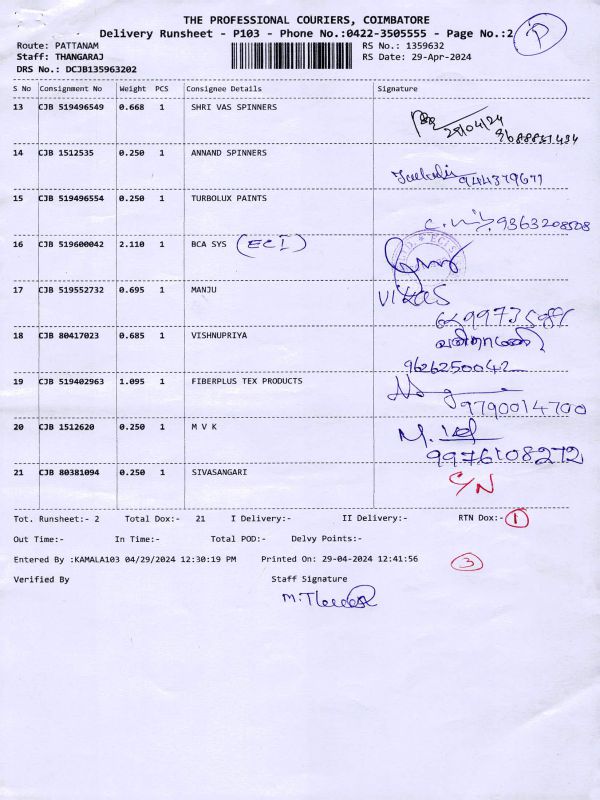 THE PROFESSIONAL COURIERS, COIMBATORE
Delivery Runsheet - P103 - Phone No.:0422-3505555 - Page No.:2 P
Route: PATTANAM RS No.: 1359632
Staff: THANGARAJ RS Date: 29-Apr-2024
DRS No.: DCJB135963202
S No Consignment No Weight PCS Consignee Details Signature
13 CJB 519496549 0.668 1 SHRI VAS SPINNERS
29/04/24
14 CJB 1512535 0.250 1 ANNAND SPINNERS
15 CJB 519496554 0.250 1 TURBOLUX PAINTS
9363208508
16 CJB 519600042 2.110 1 BCA SYS (ECI)
17 CJB 519552732 0.695 1 MANJU
VIKAS
18 CJB 80417023 0.685 1 VISHNUPRIYA
9626250042
19 CJB 519402963 1.095 1 FIBERPLUS TEX PRODUCTS
9790014700
20 CJB 1512620 0.250 1 M V K
9976108272
21 CJB 80381094 0.250 1 SIVASANGARI C/N
Tot. Runsheet:- 2 Total Dox:- 21 I Delivery:- II Delivery:- RTN Dox:- 1
Out Time:- In Time:- Total POD:- Delvy Points:-
Entered By :KAMALA103 04/29/2024 12:30:19 PM Printed On: 29-04-2024 12:41:56 3
Verified By Staff Signature